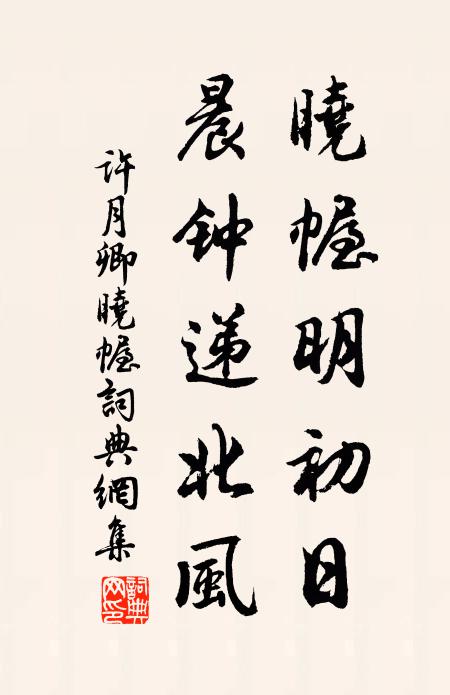 曉幄明初日
晨钟递北風
许月卿曉幄詞典網集
詞典网印